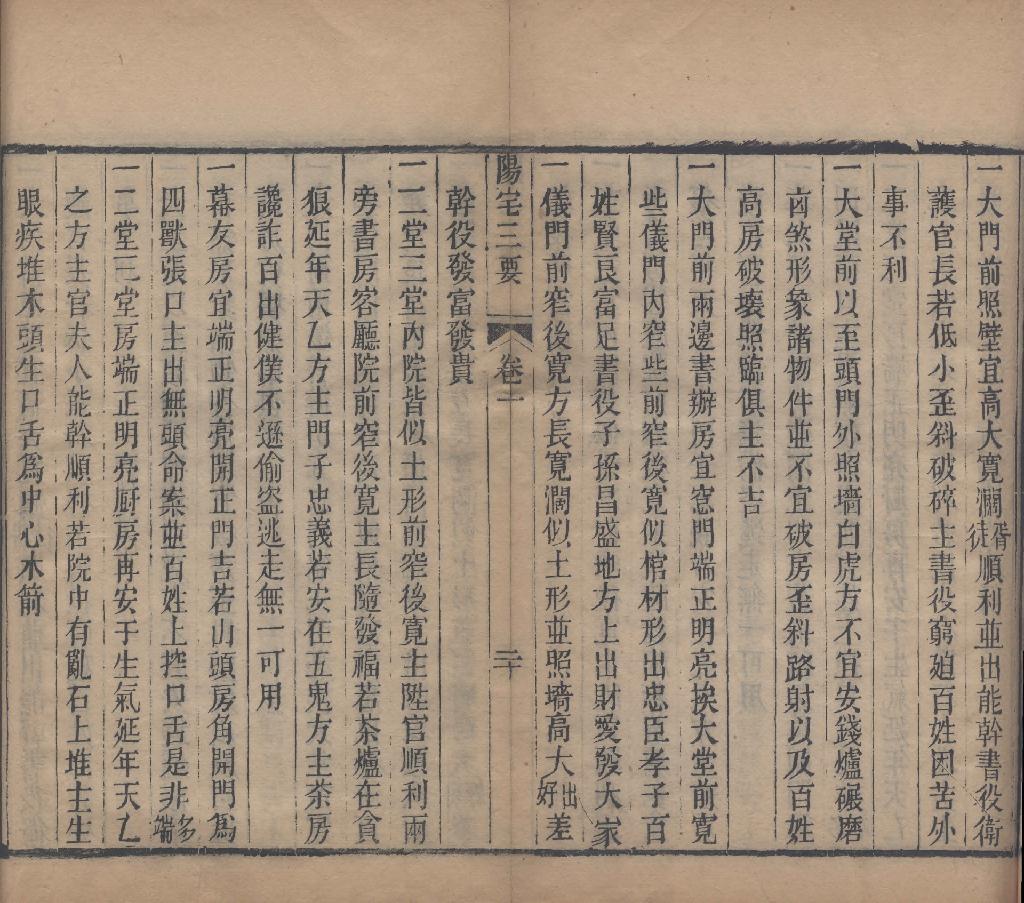 一大門前照壁宜高大寬濶胥徒順利並出能幹書役衛
護官長若低小歪斜破碎主書役窮廹百姓因苦外
事不利
一大堂前以至頭門外照墻白虎方不宜安錢爐碾磨
凶煞形象諸物件並不宜破房歪斜路射以及百姓
高房破壞照臨俱主不吉
一大門前兩邊書辦房宜窓門端正明亮挨大堂前寬
些儀門內窄些前窄後寬似棺材形出忠臣孝子百
姓賢良富足書役子孫昌盛地方上出財愛發大家
一儀門前窄後寬方長寬濶似土形並照墻高大出好差
陽宅三要 卷二 二十
幹役發富發貴
一二堂三堂內院皆似土形前窄後寬主陞官順利兩
旁書房客廳院前窄後寬主長隨發福若茶爐在貪
狼延年天乙方主門子忠義若安在五鬼方主茶房
讒詐百出健僕不遜偷盗逃走無一可用
一幕友房宜端正明亮開正門吉若山頭房角開門爲
四獸張口主出無頭命案並百姓上控口舌是非多端
一二堂三堂房端正明亮厨房再安于生氣延年天乙
之方主官夫人能幹順利若院中有亂石上堆主生
眼疾堆木頭生口舌爲中心木箭